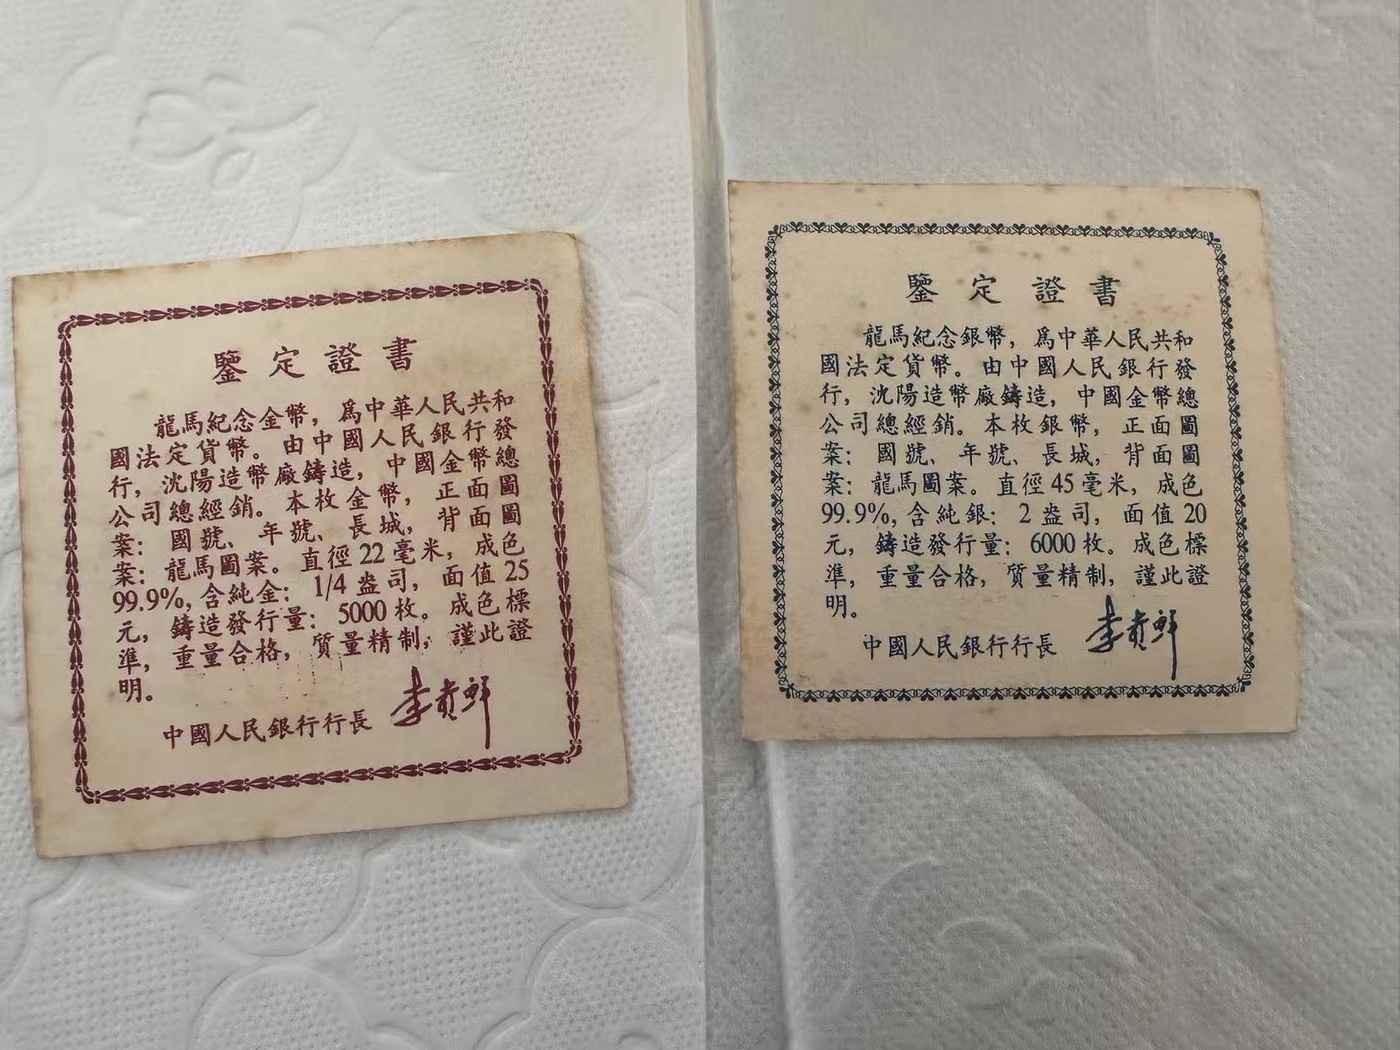 鑒定證書
龍馬紀念金幣，爲中華人民共和
國法定貨幣。由中國人民銀行發
行，沈陽造幣廠鑄造，中國金幣總
公司總經銷。本枚金幣，正面圖
案：國號、年號、長城，背面圖
案：龍馬圖案。直徑22毫米，成色
99.9%,含純金：1/4盎司，面值25
元，鑄造發行量：5000枚。成色標
準，重量合格，質量精制，謹此證
明。
中國人民銀行行長 李貴鮮
鑒定證書
龍馬紀念銀幣，爲中華人民共和
國法定貨幣。由中國人民銀行發
行，沈陽造幣廠鑄造，中國金幣總
公司總經銷。本枚銀幣，正面圖
案：國號、年號、長城，背面圖
案：龍馬圖案。直徑45毫米，成色
99.9%,含純銀：2盎司，面值20
元，鑄造發行量：6000枚。成色標
準，重量合格，質量精制，謹此證
明。
中國人民銀行行長 李貴鮮